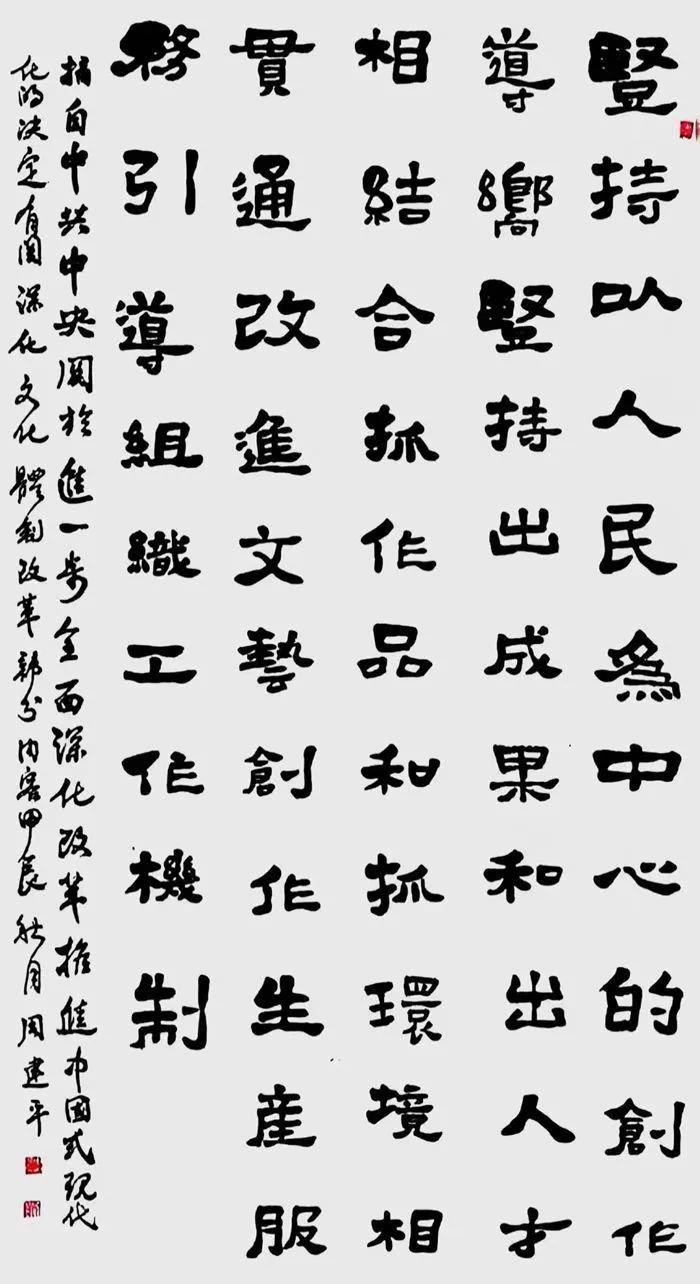 豎持以人民為中心的創作
導嚮豎持出成果和出人才
相結合抓作品和抓環境相
貫通改進文藝創作生産服
務引導組織工作機制
摘自中共中央關於進一步全面深化改革推進中國式現代
化的決定有関深化文化體制改革部分内容甲辰秋月周建平